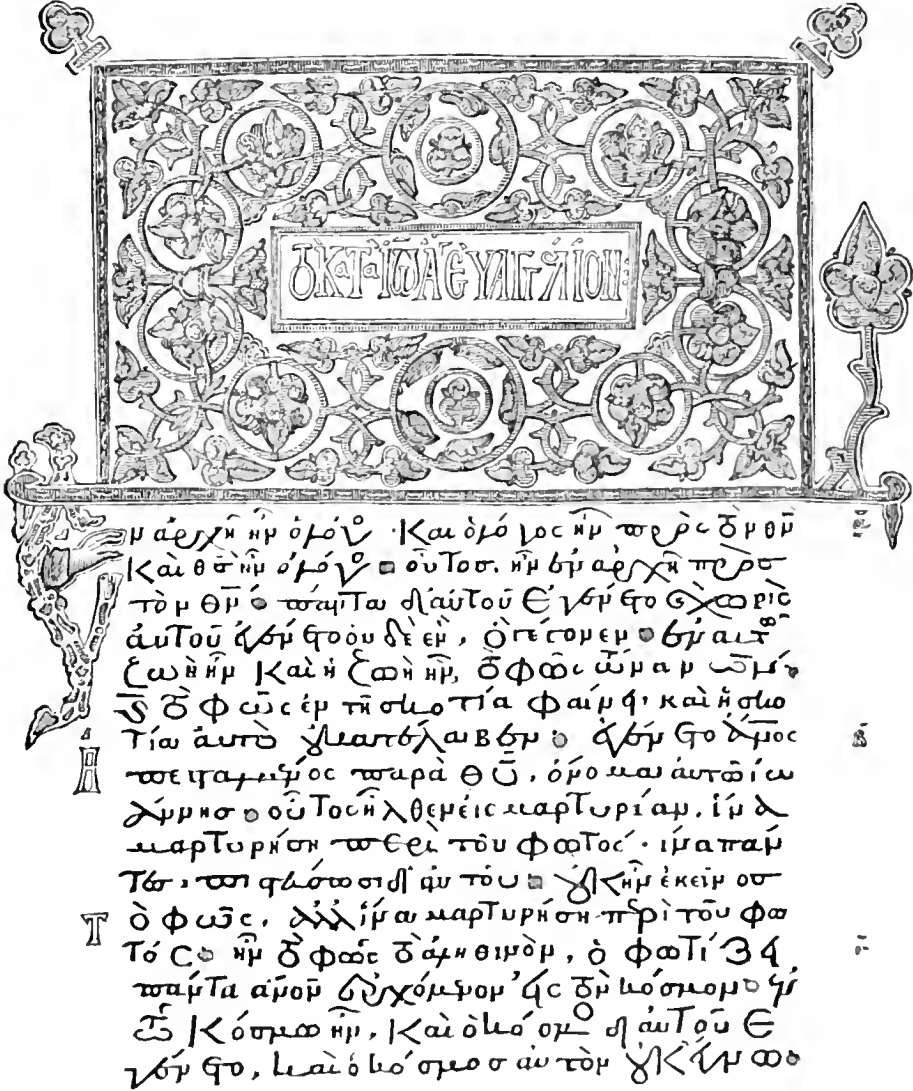 ΤὸΚατὰ Ἰω̅ΑΕΥΑΓΓέλΙΟΝ:
Ἐν ἀρχῆ ἦν ὁ λόγος · Καὶ ὁ λόγος ἦν πρὸς τὸν θ̅ν̅
Καὶ θ̅ς̅ ἦν ὁ λόγος · οὗτος. ἦν ἐν ἀρχῆ πρὸς
τὸν θ̅ν̅ · πάντα δι αὐτοῦ ἐγένετο ϗ χωρὶς
αὐτοῦ ἐγένετο οὐδὲ ἓν, ὃ γέγονεν · ἐν αὐτῶ
ζωὴ ἦν Καὶ ἡ ζωὴ ἦν, τὸ φῶς τῶν α̅ν̅ω̅ν̅ ·
ϗ τὸ φῶς ἐν τῆ σκοτία φαίνει · καὶ ἡ σκο
τία αὐτὸ οὐ κατέλαβεν · ἐγένετο ἄ̅ν̅ο̅ς̅
Ἀπεσταλμένος παρὰ θ̅υ̅, ὄνομα αὐτῶ ἰω
άννης · οὗτος ἦλθεν εἰς μαρτυρίαν, ἵνα
μαρτυρήση περὶ τοῦ φωτός · ἵνα πάν
τες, πιστεύσωσι δι αὐτοῦ · οὐκ ἦν ἐκεῖνος
Τὸ φῶς, ἀλλ ἵνα μαρτυρήση περὶ τοῦ φω
τός · ἦν τὸ φῶς τὸ ἀληθινὸν, ὃ φωτίζει
πάντα α̅ν̅ο̅ν̅ ἐρχόμενον εἰς τὸν κόσμον · ἐν
τῶ Κόσμω ἦν, Καὶ ὁ κόσμος δι αὐτοῦ ἐ
γένετο, καὶ ὁ κόσμος αὐτὸν οὐκ ἔγνω ·